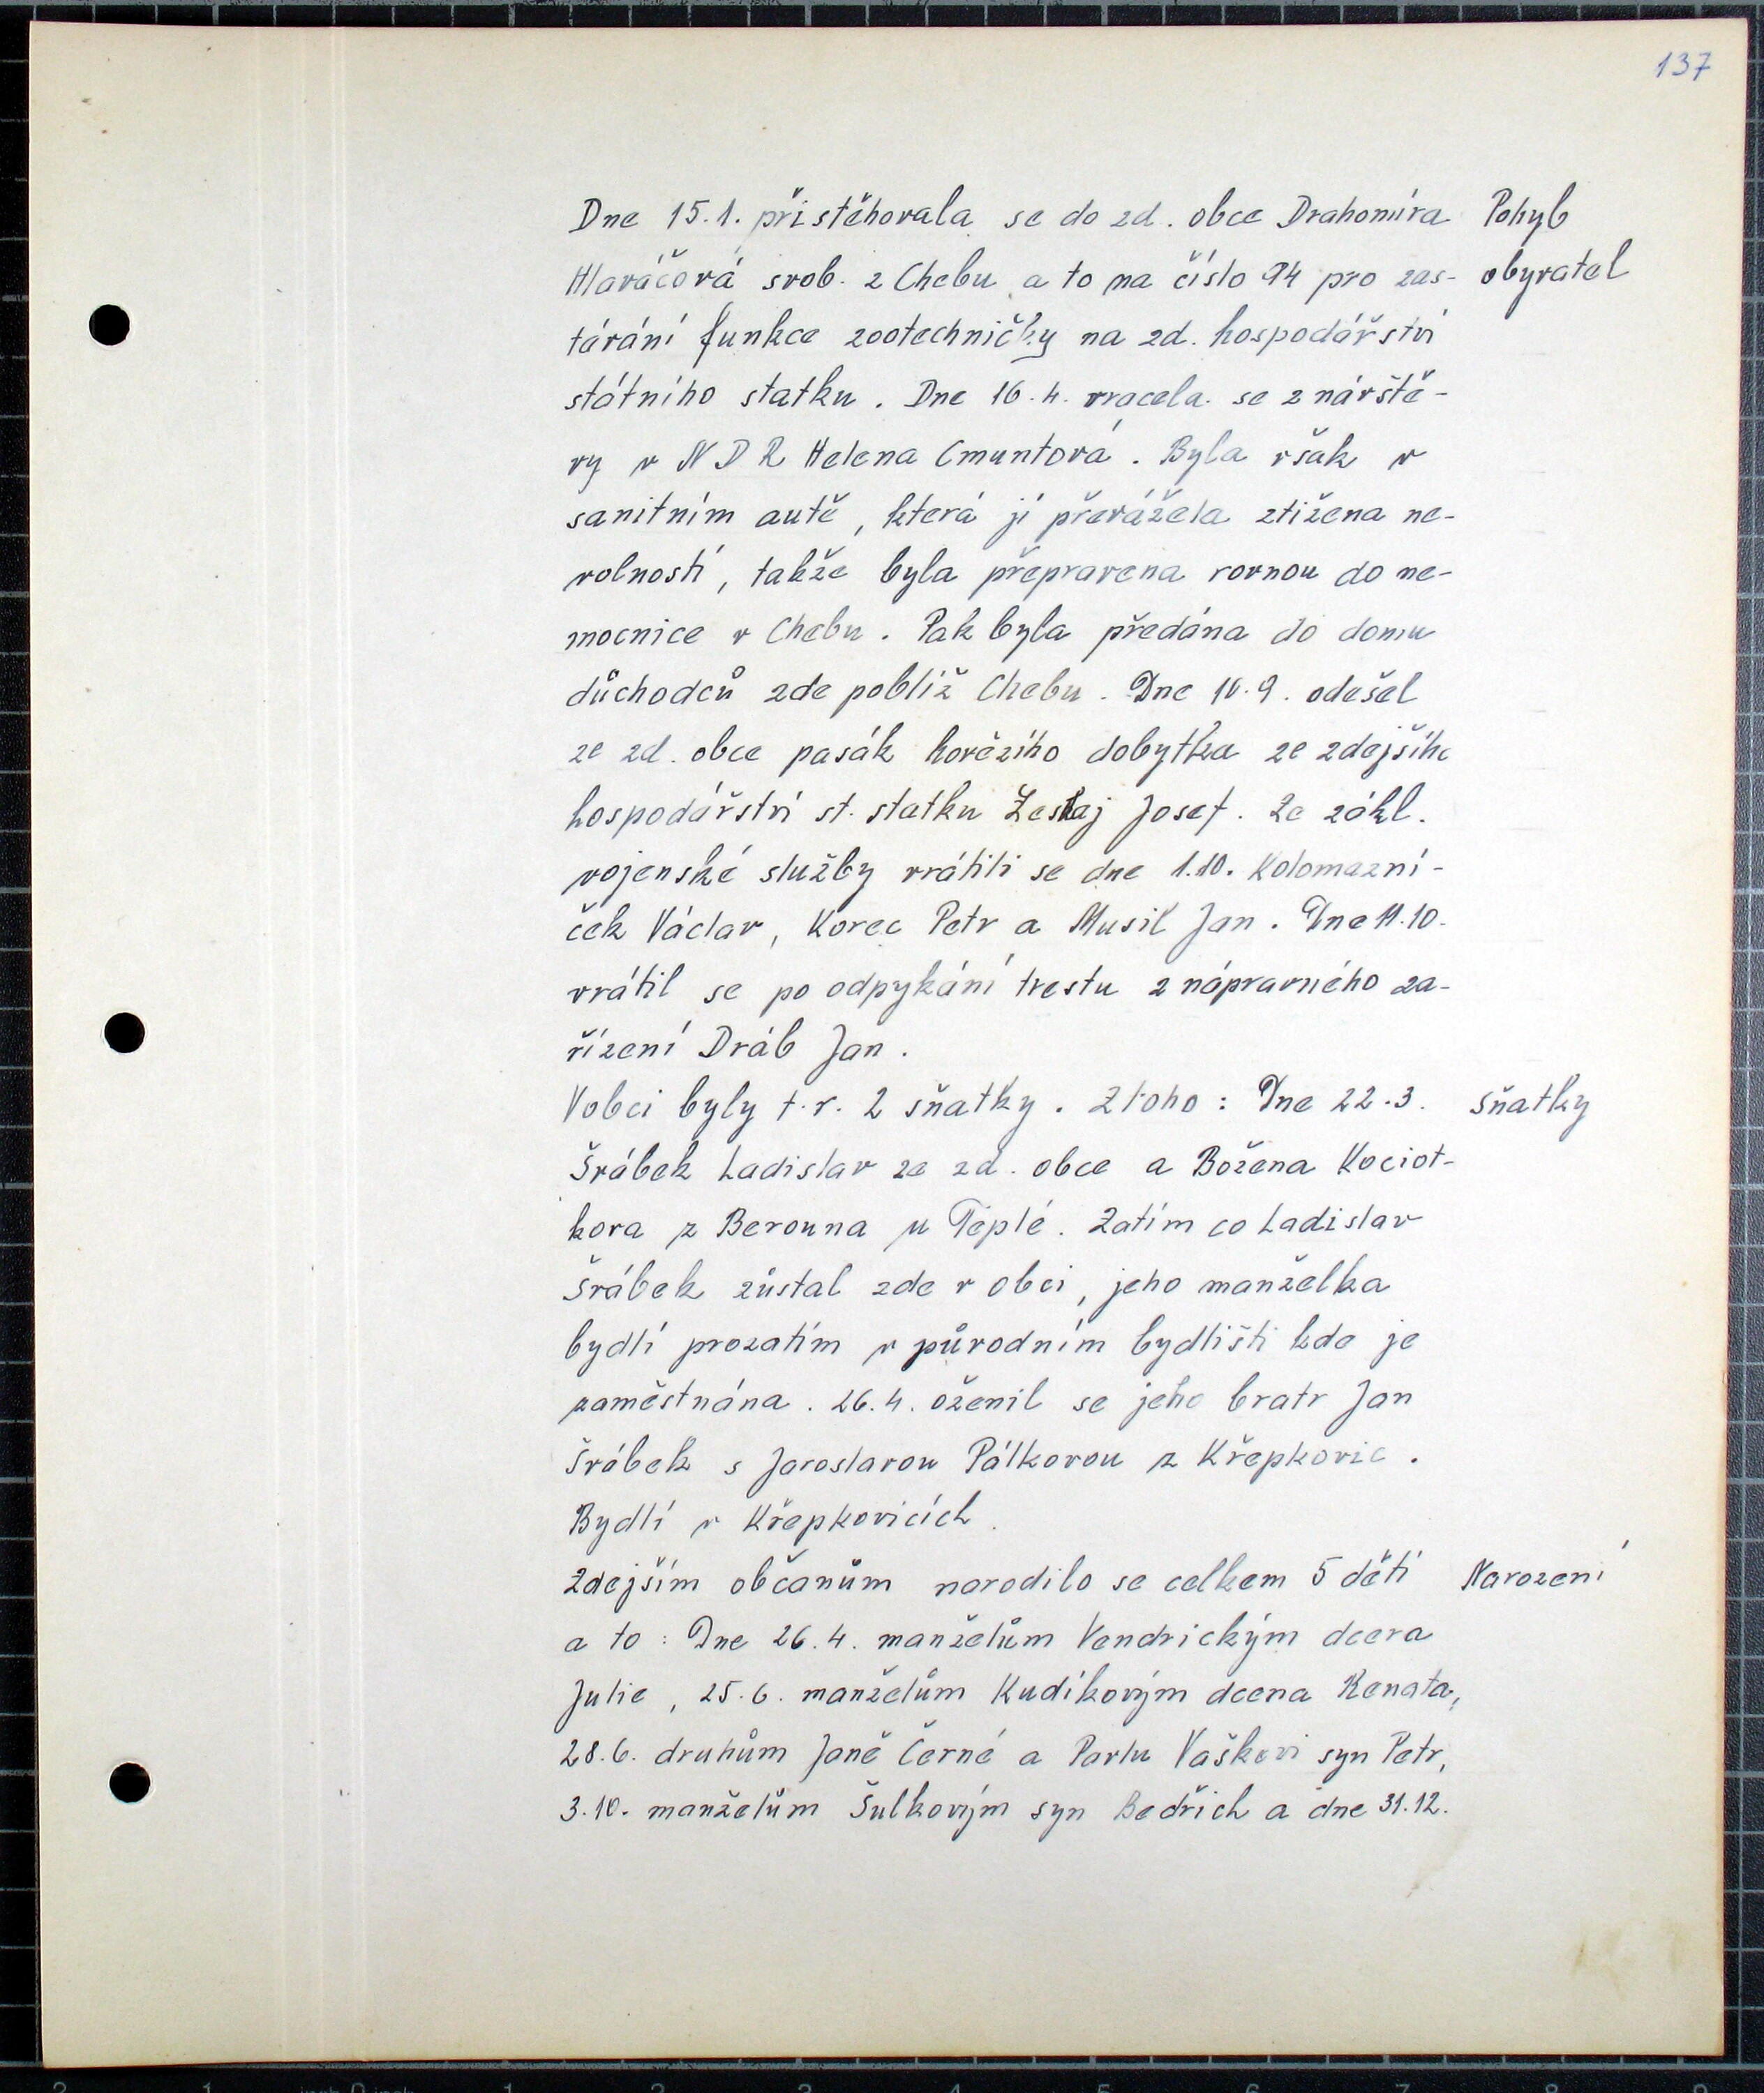 137
Dne 15.1. přistěhovala se do zd. obce Drahomíra Pohyb
Hlaváčová svob. z Chebu a to na číslo 94 pro zas- obyvatel
távání funkce zootechničky na zd. hospodářství
státního statku. Dne 16.4. vracela se z návště-
vy v NDR Helena Cmuntová. Byla však v
sanitním autě, která jí převážela ztižena ne-
volností, takže byla přepravena rovnou do ne-
mocnice v Chebu. Pak byla předána do domu
důchodců zde poblíž Chebu. Dne 10.9. odešel
ze zd. obce pasák hovězího dobytka ze zdejšího
hospodářství st. statku Josef. Ze zákl.
vojenské služby vrátili se dne 1.10. Kolomazní-
ček Václav, Korec Petr a Musil Jan. Dne 11.10.
vrátil se po odpykání trestu z nápravného za-
řízení Dráb Jan.
V obci byly t.r. 2 sňatky. Z toho: Dne 22.3. sňatky
Šrábek Ladislav ze zd. obce a Božena Kociot-
kova z Berouna u Teplé. Zatím co Ladislav
Šrábek zůstal zde v obci, jeho manželka
bydlí prozatím v původním bydlišti kde je
zaměstnána. 26.4. oženil se jeho bratr Jan
Šrábek s Jaroslavou Pálkovou z Křepkovic.
Bydlí v Křepkovicích.
Zdejším občanům narodilo se celkem 5 dětí Narození
a to: Dne 26.4. manželům Vendrickým dcera
Julie, 25.6. manželům Kudíkovým dcena Renata,
28.6. druhům Janě Černé a Pavlu Vaškovi syn Petr,
3.10. manželům Šulkovým syn Bedřich a dne 31.12.